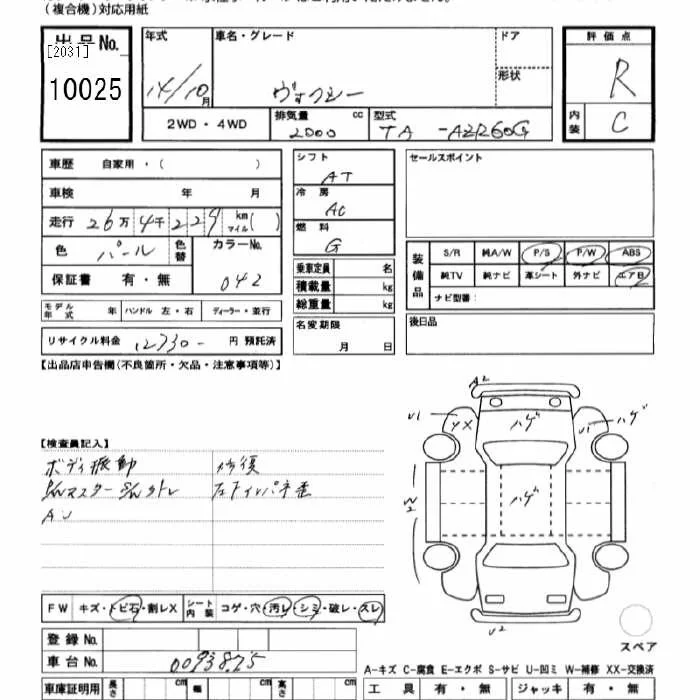 (複合機)対応用紙
出品No. 年式 車名・グレード ドア 評価点
[2031]
10025 14/10月 ヴォクシー 形状 R
2WD・4WD 排気量 cc 2000 型式 TA-AZR60G 内装 C
車歴 自家用・( ) シフト AT セールスポイント
車検 年 月 冷房 AC
走行 26万4千229 km マイル( ) 燃料 G
色 パール 色替 カラーNo. 042
保証書 有・無
乗車定員 名
積載量 kg
総重量 kg
装備品 S/R 純A/W P/S P/W ABS
純TV 純ナビ 革シート 外ナビ エアB
ナビ型番:
モデル年式 年 ハンドル 左・右 ディーラー・並行
名変期限 月 日
後日品
リサイクル料金 12730- 円 預託済
【出品店申告欄(不良箇所・欠品・注意事項等)】
A2
U1 YX ハゲ U1 ハゲ
【検査員記入】
ボディ振動 修復
AJ
ハゲ
W2
FW キズ・トビ石・割レX シート内装 コゲ・穴・汚レ・シミ・破レ・スレ
U2
登録No.
車台No. 0093825
スペア
A-キズ C-腐食 E-エクボ S-サビ U-凹ミ W-補修 XX-交換済
車庫証明用 長さ cm 幅 cm 高さ cm 工具 有・無 ジャッキ 有・無